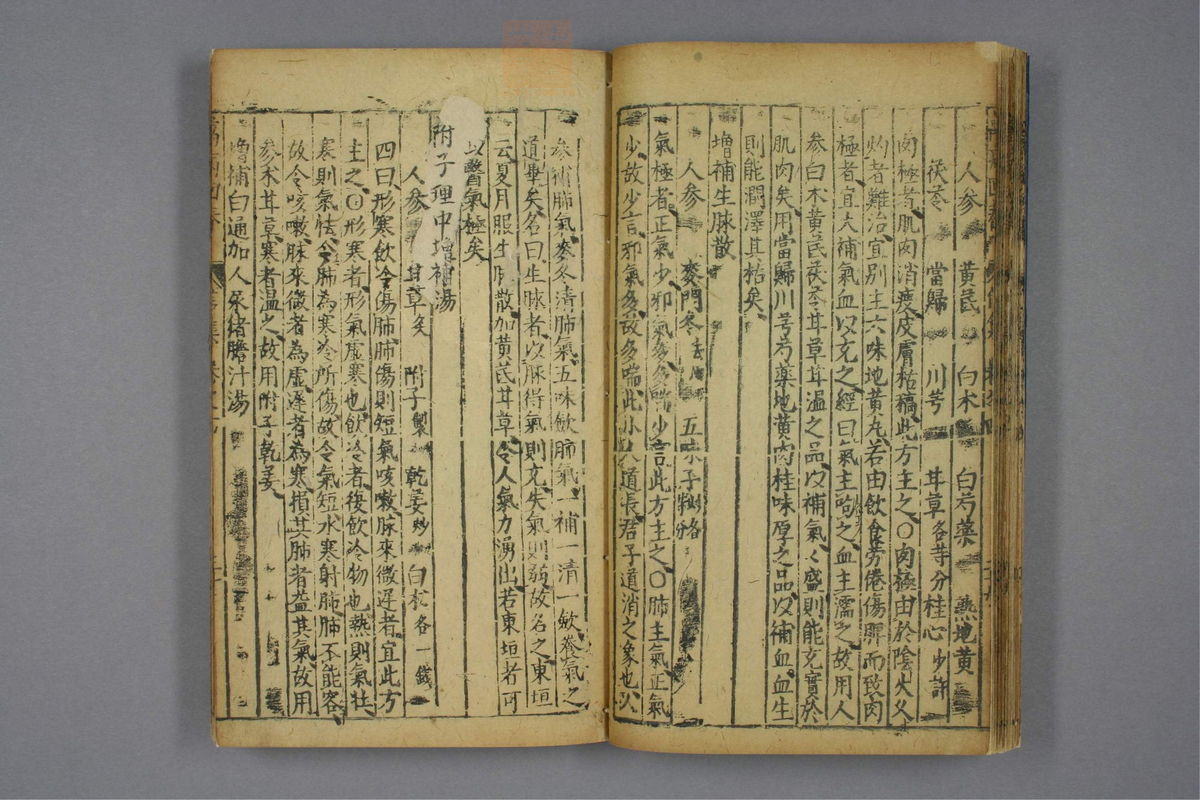 人參 黃芪 白朮 白芍藥 熟地黃
茯苓 當歸 川芎 甘草各等分桂心少許
肉極者肌肉消瘦皮膚枯槁此方主之〇肉極由於陰火久
灼者難治宜別主六味地黃丸若由飲食勞倦傷脾而致肉
極者宜大補氣血以充之經曰氣主呴之血主濡之故用人
參白朮黃芪茯苓甘草甘溫之品以補氣々盛則能充實於
肌肉矣用當歸川芎芍藥地黃肉桂味厚之品以補血血生
則能潤澤其枯矣
增補生脉散
人參 麥門冬去 五味子 各 分
氣極者正氣少邪氣多多喘少言此方主之〇肺主氣正氣
少故少言邪氣多故多喘此小人道長君子道消之象也以
參補肺氣麥冬清肺氣五味斂肺氣一補一清一斂養氣之
道畢矣名曰生脉者以脉得氣則充失氣則弱故名之東垣
云夏月服生脉散加黃芪甘草令人氣力湧出若東垣者可
以醫氣極矣
附子理中增補湯
人參 甘草炙 附子製 乾姜炒 白朮各一錢
四曰形寒飲冷傷肺肺傷則短氣咳嗽脉來微遲者宜此方
主之〇形寒者形氣虛寒也飲冷者後飲冷物也熱則氣壯
寒則氣怯今肺為寒冷所傷故令氣短水寒射肺肺不能容
故令咳嗽脉來微者為虛遲者為寒損其肺者益其氣故用
參朮甘草寒者溫之故用附子乾姜
增補白通加人尿猪膽汁湯